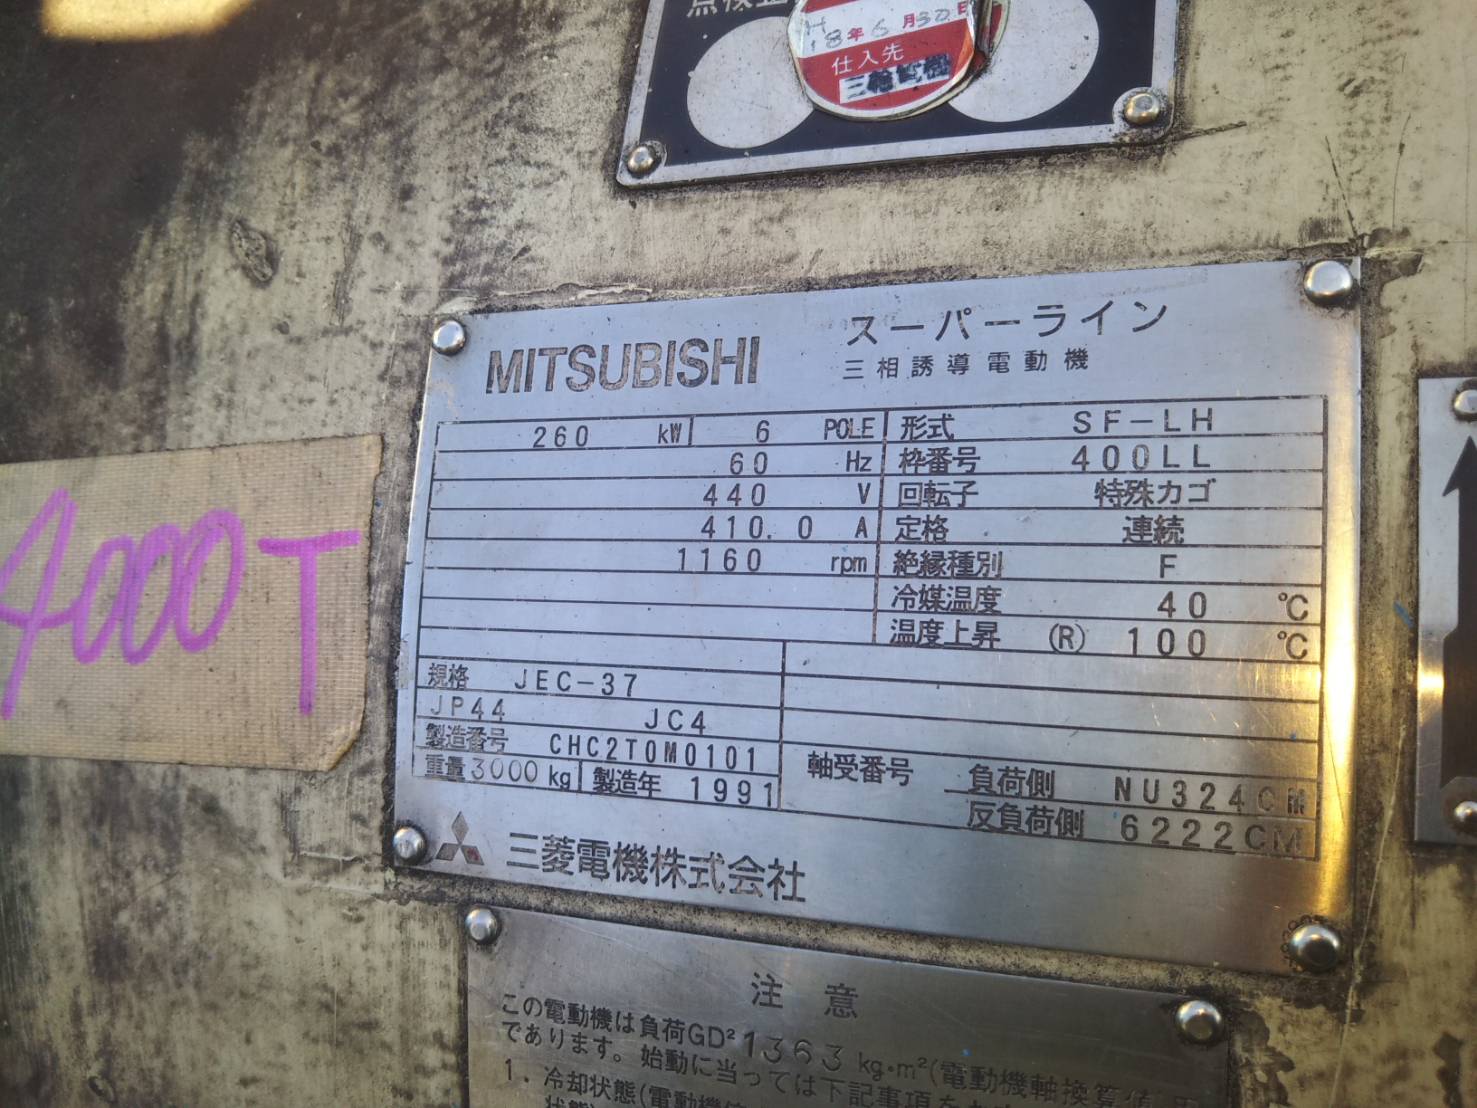 点検
H
18年6月30日
仕入先
三 電機
4000T
MITSUBISHI
スーパーライン
三相誘導電動機
260 kW 6 POLE 形式 SF-LH
60 Hz 枠番号 400LL
440 V 回転子 特殊カゴ
410.0 A 定格 連続
1160 rpm 絶縁種別 F
冷媒温度 40 ℃
温度上昇 (R) 100 ℃
規格 JEC-37
JP44 JC4
製造番号 CHC2T0M0101
重量 3000 kg 製造年 1991
軸受番号 負荷側 NU324CM
反負荷側 6222CM
三菱電機株式会社
注意
この電動機は負荷GD² 1363 kg・m²(電動機軸換算値
であります。始動に当っては下記事項を
1. 冷却状態(電動機